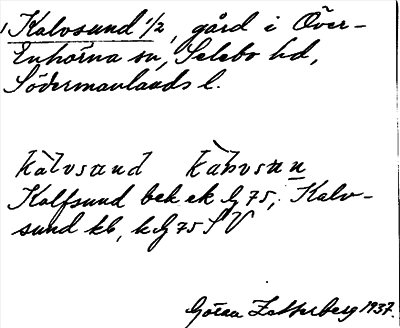 Kalvsund 1/2, gård i Över-
Enhörna sn, Selebo hd,
Södermanlands l.
kalvsund kalvsun
Kalfsund bek ek G 75, Kalv-
sund kb, k G 75 S V
Gösta Zetterberg 1937.